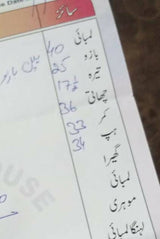 سائز
لمبائی 40
بازو 25
تیرہ 17½
چھاتی 36
کمر 33
ہپ 34
گھیرا
لمبائی
موہری
لہنگا لمبائی